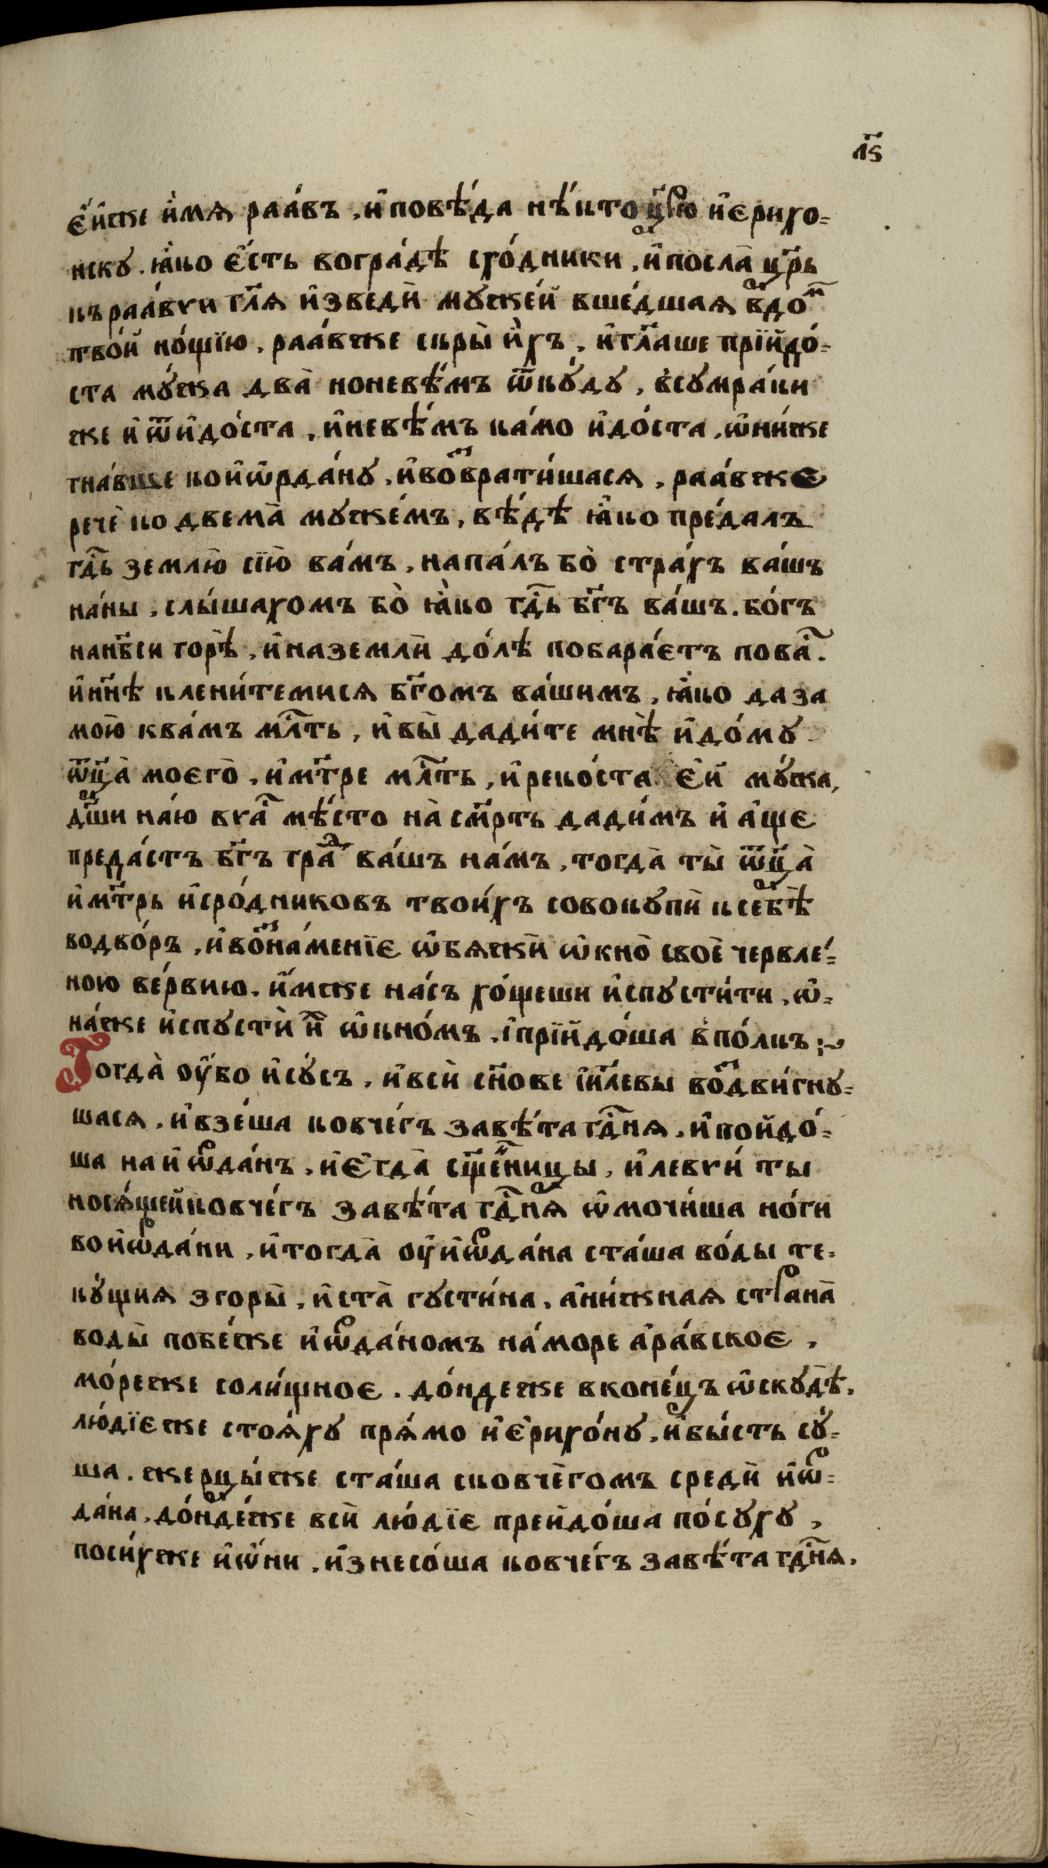 л҃ѕ
є҆́йже и҆́мѧ раа́въ , и҆ повѣ́да нѣ́кто цр҃ю и҆єрихо=
нску . ꙗ҆́ко є҆́сть во гра́дѣ схо́дники , и҆ посла̀ цр҃ь
къ раа́вѵи гл҃ѧ и҆зведѝ мꙋже́й вше́дшаѧ в до́м
тво́й но́щїю , раа́вже скры̀ и҆̀хъ , и҆ гл҃аше прїидо́=
ста мꙋ́жа два̀ но невѣ́мъ ѿкꙋ́дꙋ , в̾сꙋмра́ки
же и҆ ѿидо́ста , и҆ невѣ́мъ ка́мо и҆до́ста , ѡ҆ни́же
гна́вше ко и҆ѡрда́нꙋ , и҆ возврати́шасѧ , раа́вже
речѐ ко двема̀ мꙋже́мъ , вѣ́дѣ ꙗ҆́ко преда́лъ
гд҃ь землю̀ сїю̀ ва́мъ , напа́лъ бо̀ стра́хъ ва́шъ
на́ны , слы́шахомъ бо̀ ꙗ҆́ко гд҃ь бг҃ъ ва́шъ . бо́гъ
на нб҃си горѣ̀ , и҆ на землѝ до́лѣ побара́єтъ по ва́с .
и҆ нн҃ѣ клени́темисѧ бг҃омъ ва́шимъ , ꙗ҆́ко да за
мою̀ к ва́мъ мл҃ть , и҆ вы̀ дади́те мнѣ̀ и҆ до́мꙋ
ѿц҃а̀ моєго̀ , и҆ мт҃ре мл҃ть , и҆ реко́ста є҆́й мꙋ́жа ,
дш҃и на́ю в ва́с мѣ́сто на̀ см҃рть дади́мъ и҆ а҆́ще
преда́стъ бг҃ъ гра́д ва́шъ на́мъ , тогда̀ ты̀ ѿц҃а̀
и҆ мт҃рь и҆ сро́дниковъ твои́хъ совокꙋпѝ к себѣ̀
во дво́ръ , и҆ во зна́менїє ѡ҆бѧжѝ ѡ҆кно̀ своѐ червле́=
ною ве́рвию . и҆́мже на́съ хо́щеши и҆спꙋсти́ти , ѡ҆=
на́же и҆спꙋстѝ и҆́х ѡ҆кно́мъ . і҆ прїидо́ша в̾ по́лкъ :~
Тогда̀ ᲂу҆̀бо и҆сꙋ́съ , и҆ всѝ сн҃ове і҆и҃левы воздви́гнꙋ=
шасѧ , и҆ взе́ша ковче́гъ завѣ́та гд҃нѧ , и҆ поидо́=
ша на и҆ѡрда́нъ , и҆ є҆гда̀ сщ҃е́нницы , и҆ левѵи́ты
носѧ́щей ковче́гъ завѣ́та гд҃нѧ ѡ҆мочи́ша но́ги
во и҆ѡрда́ни , и҆ тогда̀ ᲂу҆ и҆ѡрда́на ста́ша во́ды те=
кꙋ́щиѧ з горы̀ , и҆ ста̀ гꙋсти́на , а҆ ни́жнаѧ страна̀
воды̀ побе́же и҆ѡрда́номъ на́ море а҆ра́вскоє ,
мо́реже соли́щноє . до́ндеже в коне́цъ ѡ҆скꙋ́дѣ .
лю́дїєже стоѧ́хꙋ прѧ́мо и҆єрихо́нꙋ , и҆ бы́сть сꙋ́=
ша . жерцы́же ста́ша с ковче́гомъ средѝ и҆ѡр=
да́на , до́ндеже всѝ лю́дїє преидо́ша по́ сꙋхꙋ ,
по си́хже и҆ ѡ҆ни , и҆знесо́ша ковче́гъ завѣ́та гд҃нѧ .